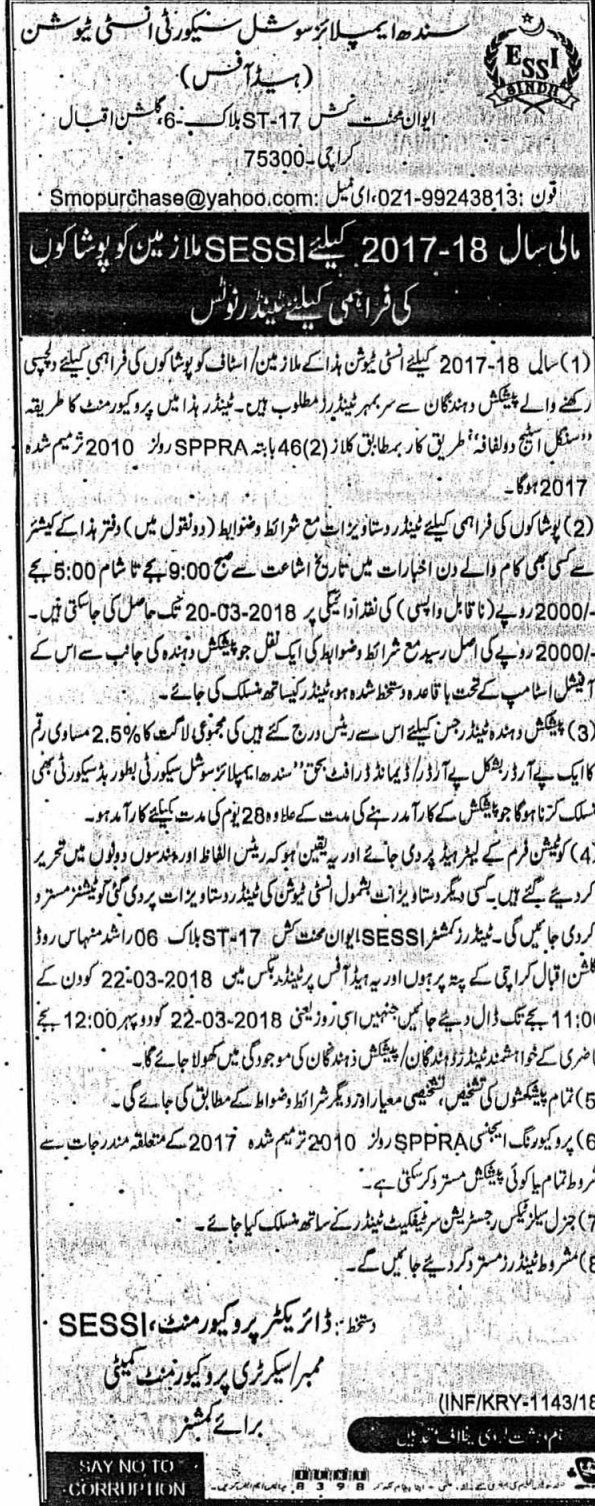 سندھ ایمپلائز سوشل سیکورٹی انسٹی ٹیوشن
(ہیڈ آفس)
ESSI
SINDH
ایوان محنت کش ST-17 بلاک-6، گلشن اقبال
کراچی-75300
فون: 021-99243813، ای میل: Smopurchase@yahoo.com
مالی سال 18-2017 کیلئے SESSI ملازمین کو پوشاکوں
کی فراہمی کیلئے ٹینڈر نوٹس
(1) سال 18-2017 کیلئے انسٹی ٹیوشن ہذا کے ملازمین/ اسٹاف کو پوشاکوں کی فراہمی کیلئے دلچسپی
رکھنے والے پیشکش دہندگان سے سربمہر ٹینڈرز مطلوب ہیں۔ ٹینڈر ہذا میں پروکیورمنٹ کا طریقہ
“سنگل اسٹیج دو لفافہ” طریق کار بمطابق کلاز (2)46 بابتہ SPPRA رولز 2010 ترمیم شدہ
2017 ہوگا۔
(2) پوشاکوں کی فراہمی کیلئے ٹینڈر دستاویزات مع شرائط وضوابط (دو نقول میں) دفتر ہذا کے کیشئر
سے کسی بھی کام والے دن اخبارات میں تاریخ اشاعت سے صبح 9:00 بجے تا شام 5:00 بجے
2000/- روپے (ناقابل واپسی) کی نقد ادائیگی پر 20-03-2018 تک حاصل کی جاسکتی ہیں۔
2000/- روپے کی اصل رسید مع شرائط وضوابط کی ایک نقل جو پیشکش دہندہ کی جانب سے اس کے
آفیشل اسٹامپ کے تحت باقاعدہ دستخط شدہ ہو، ٹینڈر کیساتھ منسلک کی جائے۔
(3) پیشکش دہندہ ٹینڈر جن کیلئے اس سے ریٹس درج کئے ہیں کی مجموعی لاگت کا 2.5% مساوی رقم
کا ایک پے آرڈر بشکل پے آرڈر/ ڈیمانڈ ڈرافٹ بحق “سندھ ایمپلائز سوشل سیکورٹی بطور بڈ سیکورٹی بھی
منسلک کرنا ہوگا جو پیشکش کے کارآمد رہنے کی مدت کے علاوہ 28 یوم کی مدت کیلئے کارآمد ہو۔
(4) کوٹیشن فرم کے لیٹر ہیڈ پر دی جائے اور یہ یقین ہو کہ ریٹس الفاظ اور ہندسوں دونوں میں تحریر
کردیئے گئے ہیں۔ کسی دیگر دستاویزات بشمول انسٹی ٹیوشن کی ٹینڈر دستاویزات پر دی گئی کوٹیشنز مسترد
کردی جائیں گی۔ ٹینڈرز کمشنر SESSI ایوان محنت کش ST-17 بلاک 06 راشد منہاس روڈ
گلشن اقبال کراچی کے پتہ پر ہوں اور یہ ہیڈ آفس پر ٹینڈر بکس میں 22-03-2018 کو دن کے
11:00 بجے تک ڈال دیئے جائیں جنہیں اسی روز یعنی 22-03-2018 کو دوپہر 12:00 بجے
حاضری کے خواہشمند ٹینڈرز دہندگان/ پیشکش دہندگان کی موجودگی میں کھولا جائے گا۔
5) تمام پیشکشوں کی تشخیص، تشخیصی معیار اور دیگر شرائط وضوابط کے مطابق کی جائے گی۔
6) پروکیورنگ ایجنسی SPPRA رولز 2010 ترمیم شدہ 2017 کے متعلقہ مندرجات سے
مشروط تمام یا کوئی پیشکش مسترد کرسکتی ہے۔
7) جنرل سیلز ٹیکس رجسٹریشن سرٹیفکیٹ ٹینڈر کے ساتھ منسلک کیا جائے۔
8) مشروط ٹینڈرز مسترد کردیئے جائیں گے۔
دستخط: ڈائریکٹر پروکیورمنٹ، SESSI
ممبر/سیکرٹری پروکیورمنٹ کمیٹی
برائے کمشنر
(INF/KRY-1143/18
ہم دہشت گردی کے خلاف متحد ہیں
SAY NO TO
CORRUPTION
8398